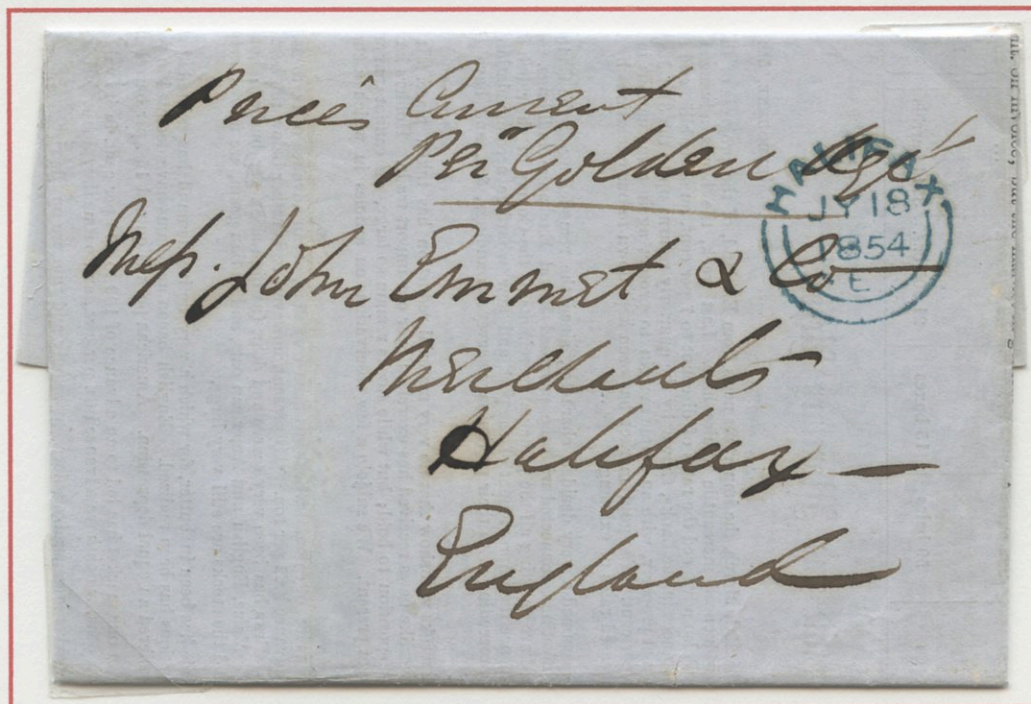 Prices Current
Per "Golden Age"
HALIFAX
JY 18
1854
E
Mess. John Emmet & Co
Merchants
Halifax —
England